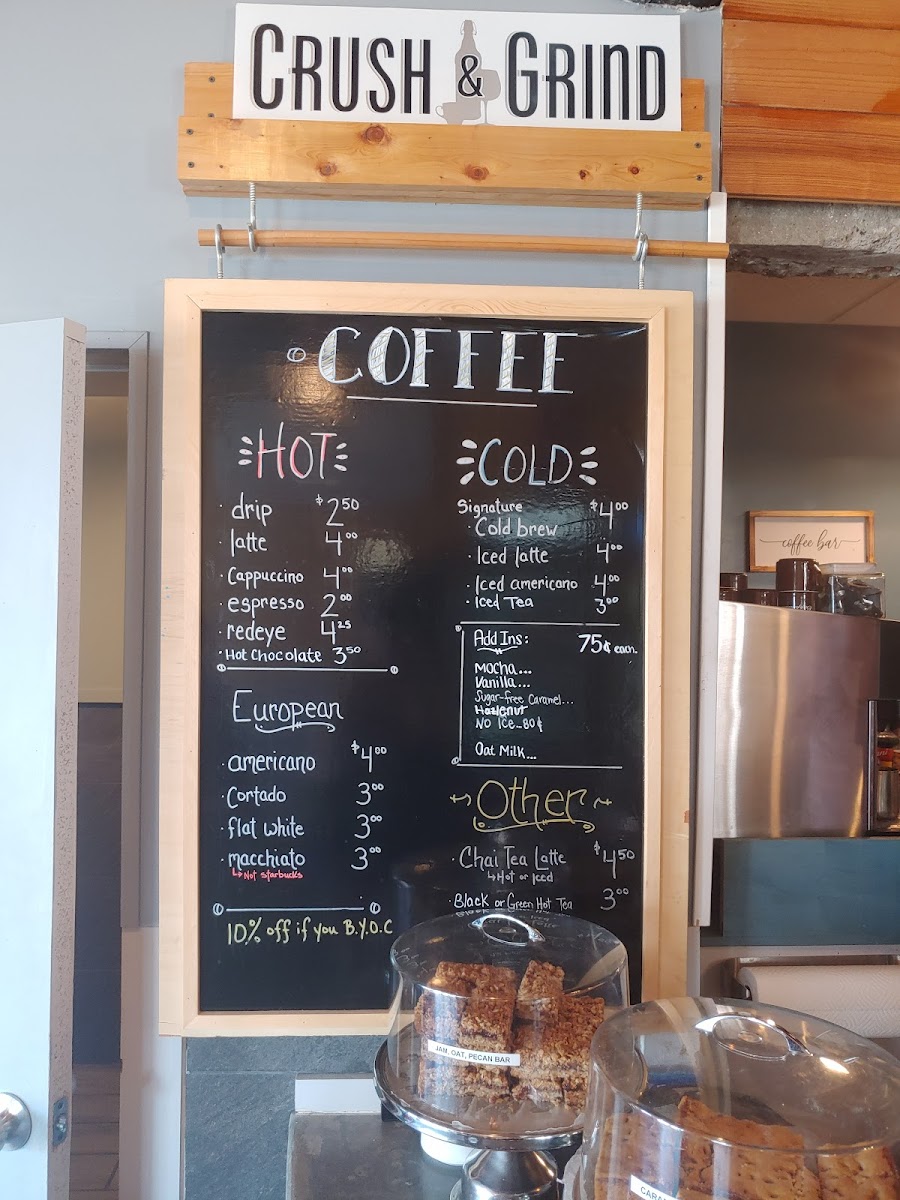 CRUSH & GRIND
COFFEE
HOT
drip $2.50
latte 4.00
Cappuccino 4.00
espresso 2.00
redeye 4.25
Hot Chocolate 3.50
European
americano $4.00
Cortado 3.00
flat white 3.00
macchiato 3.00
Not starbucks
10% off if you B.Y.O.C
COLD
Signature
Cold brew $4.00
Iced latte 4.00
Iced americano 4.00
Iced Tea 3.00
Add Ins: 75¢ each.
Mocha...
Vanilla...
Sugar-free Caramel...
Hazelnut
No Ice...80¢
Oat Milk...
Other
Chai Tea Latte $4.50
Hot or Iced
Black or Green Hot Tea 3.00
coffee bar
JAM, OAT, PECAN BAR